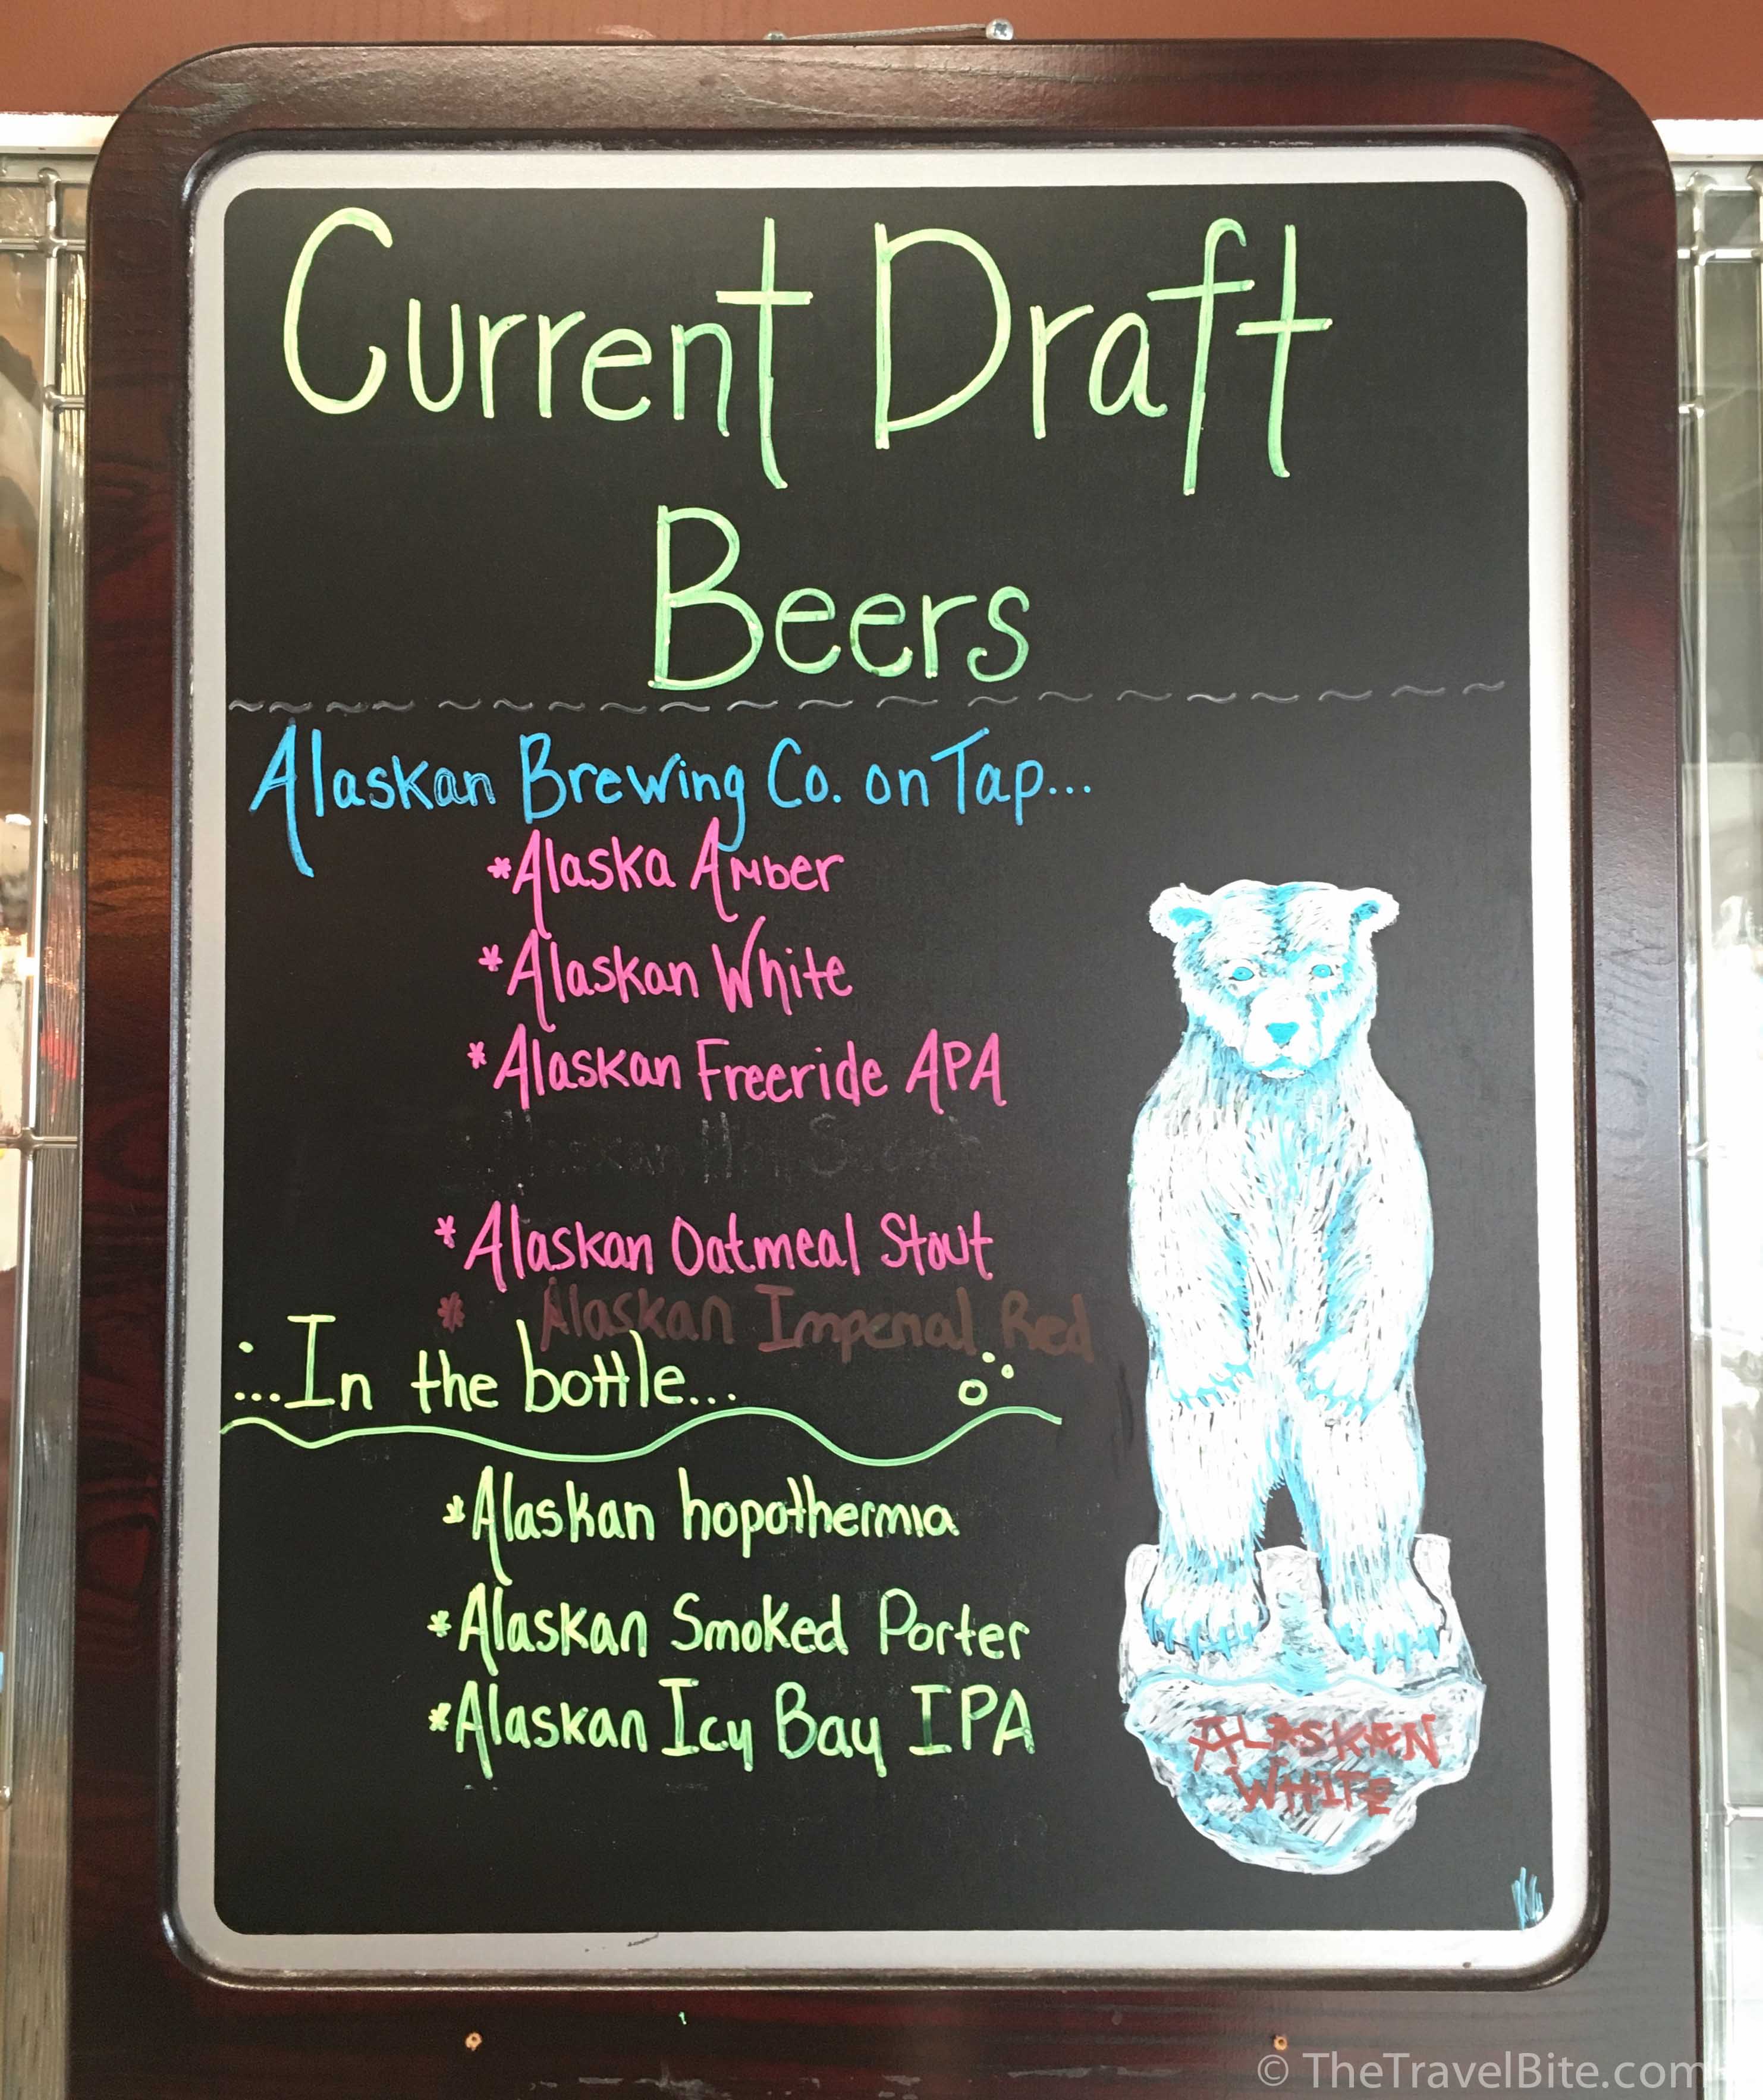 Current Draft
Beers
Alaskan Brewing Co. on Tap...
*Alaska Amber
*Alaskan White
*Alaskan Freeride APA
*Alaskan Oatmeal Stout
* Alaskan Imperial Red
...In the bottle...
*Alaskan hopothermia
*Alaskan Smoked Porter
*Alaskan Icy Bay IPA
ALASKAN
WHITE
© TheTravelBite.com